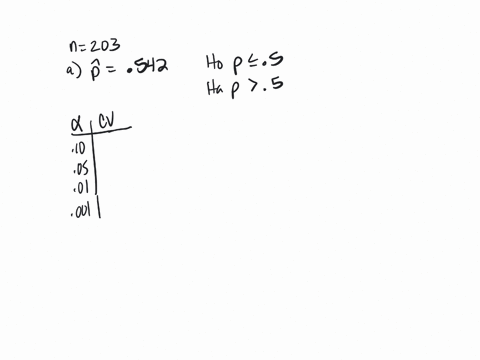 n=203
a) p̂ = .542
Ho p ≤ .5
Ha p > .5
α CV
.10
.05
.01
.001